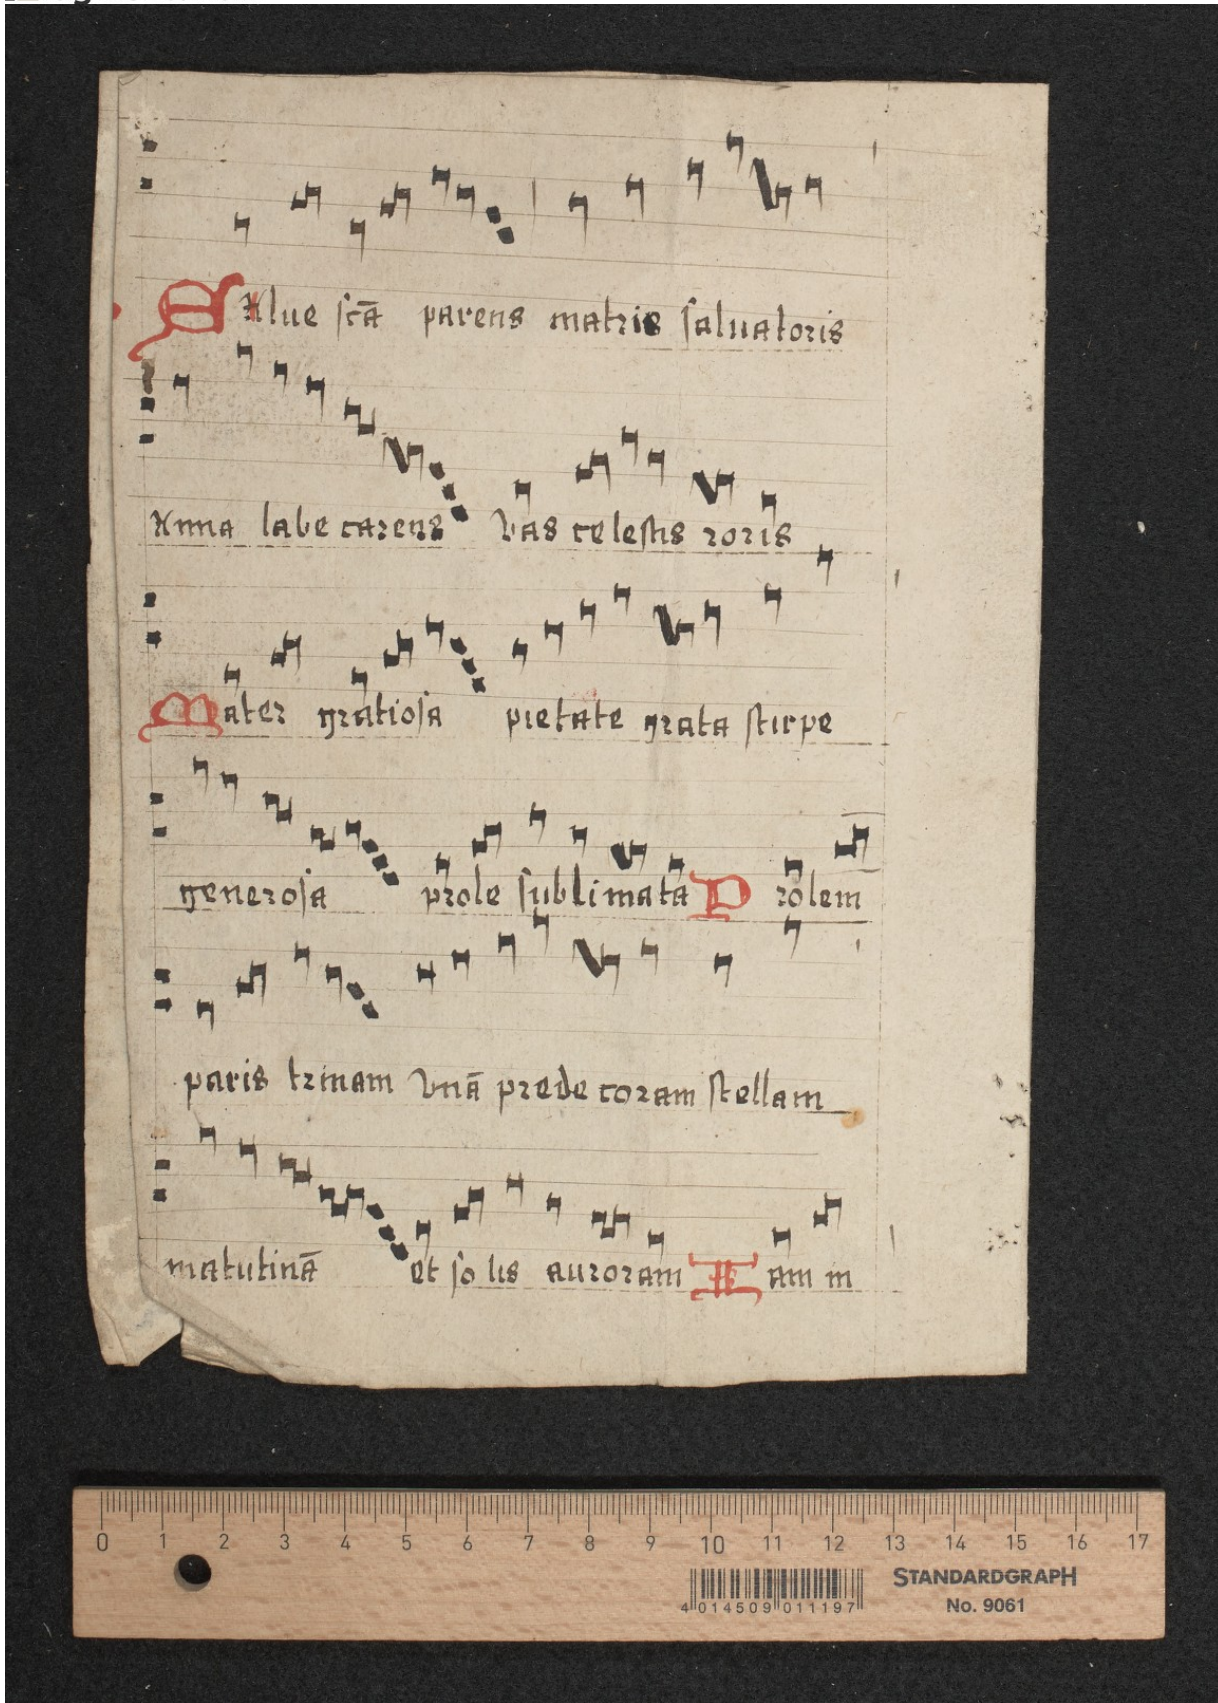 SAlue scā parens matris saluatoris
Anna labe carens vas celestis roris
Mater gratiosa pietate grata stirpe
generosa prole sublimata Prolem
paris trinam vnā predecoram stellam
matutinā et solis auroram Iam in
0 1 2 3 4 5 6 7 8 9 10 11 12 13 14 15 16 17
STANDARDGRAPH
4 014509 011197
No. 9061